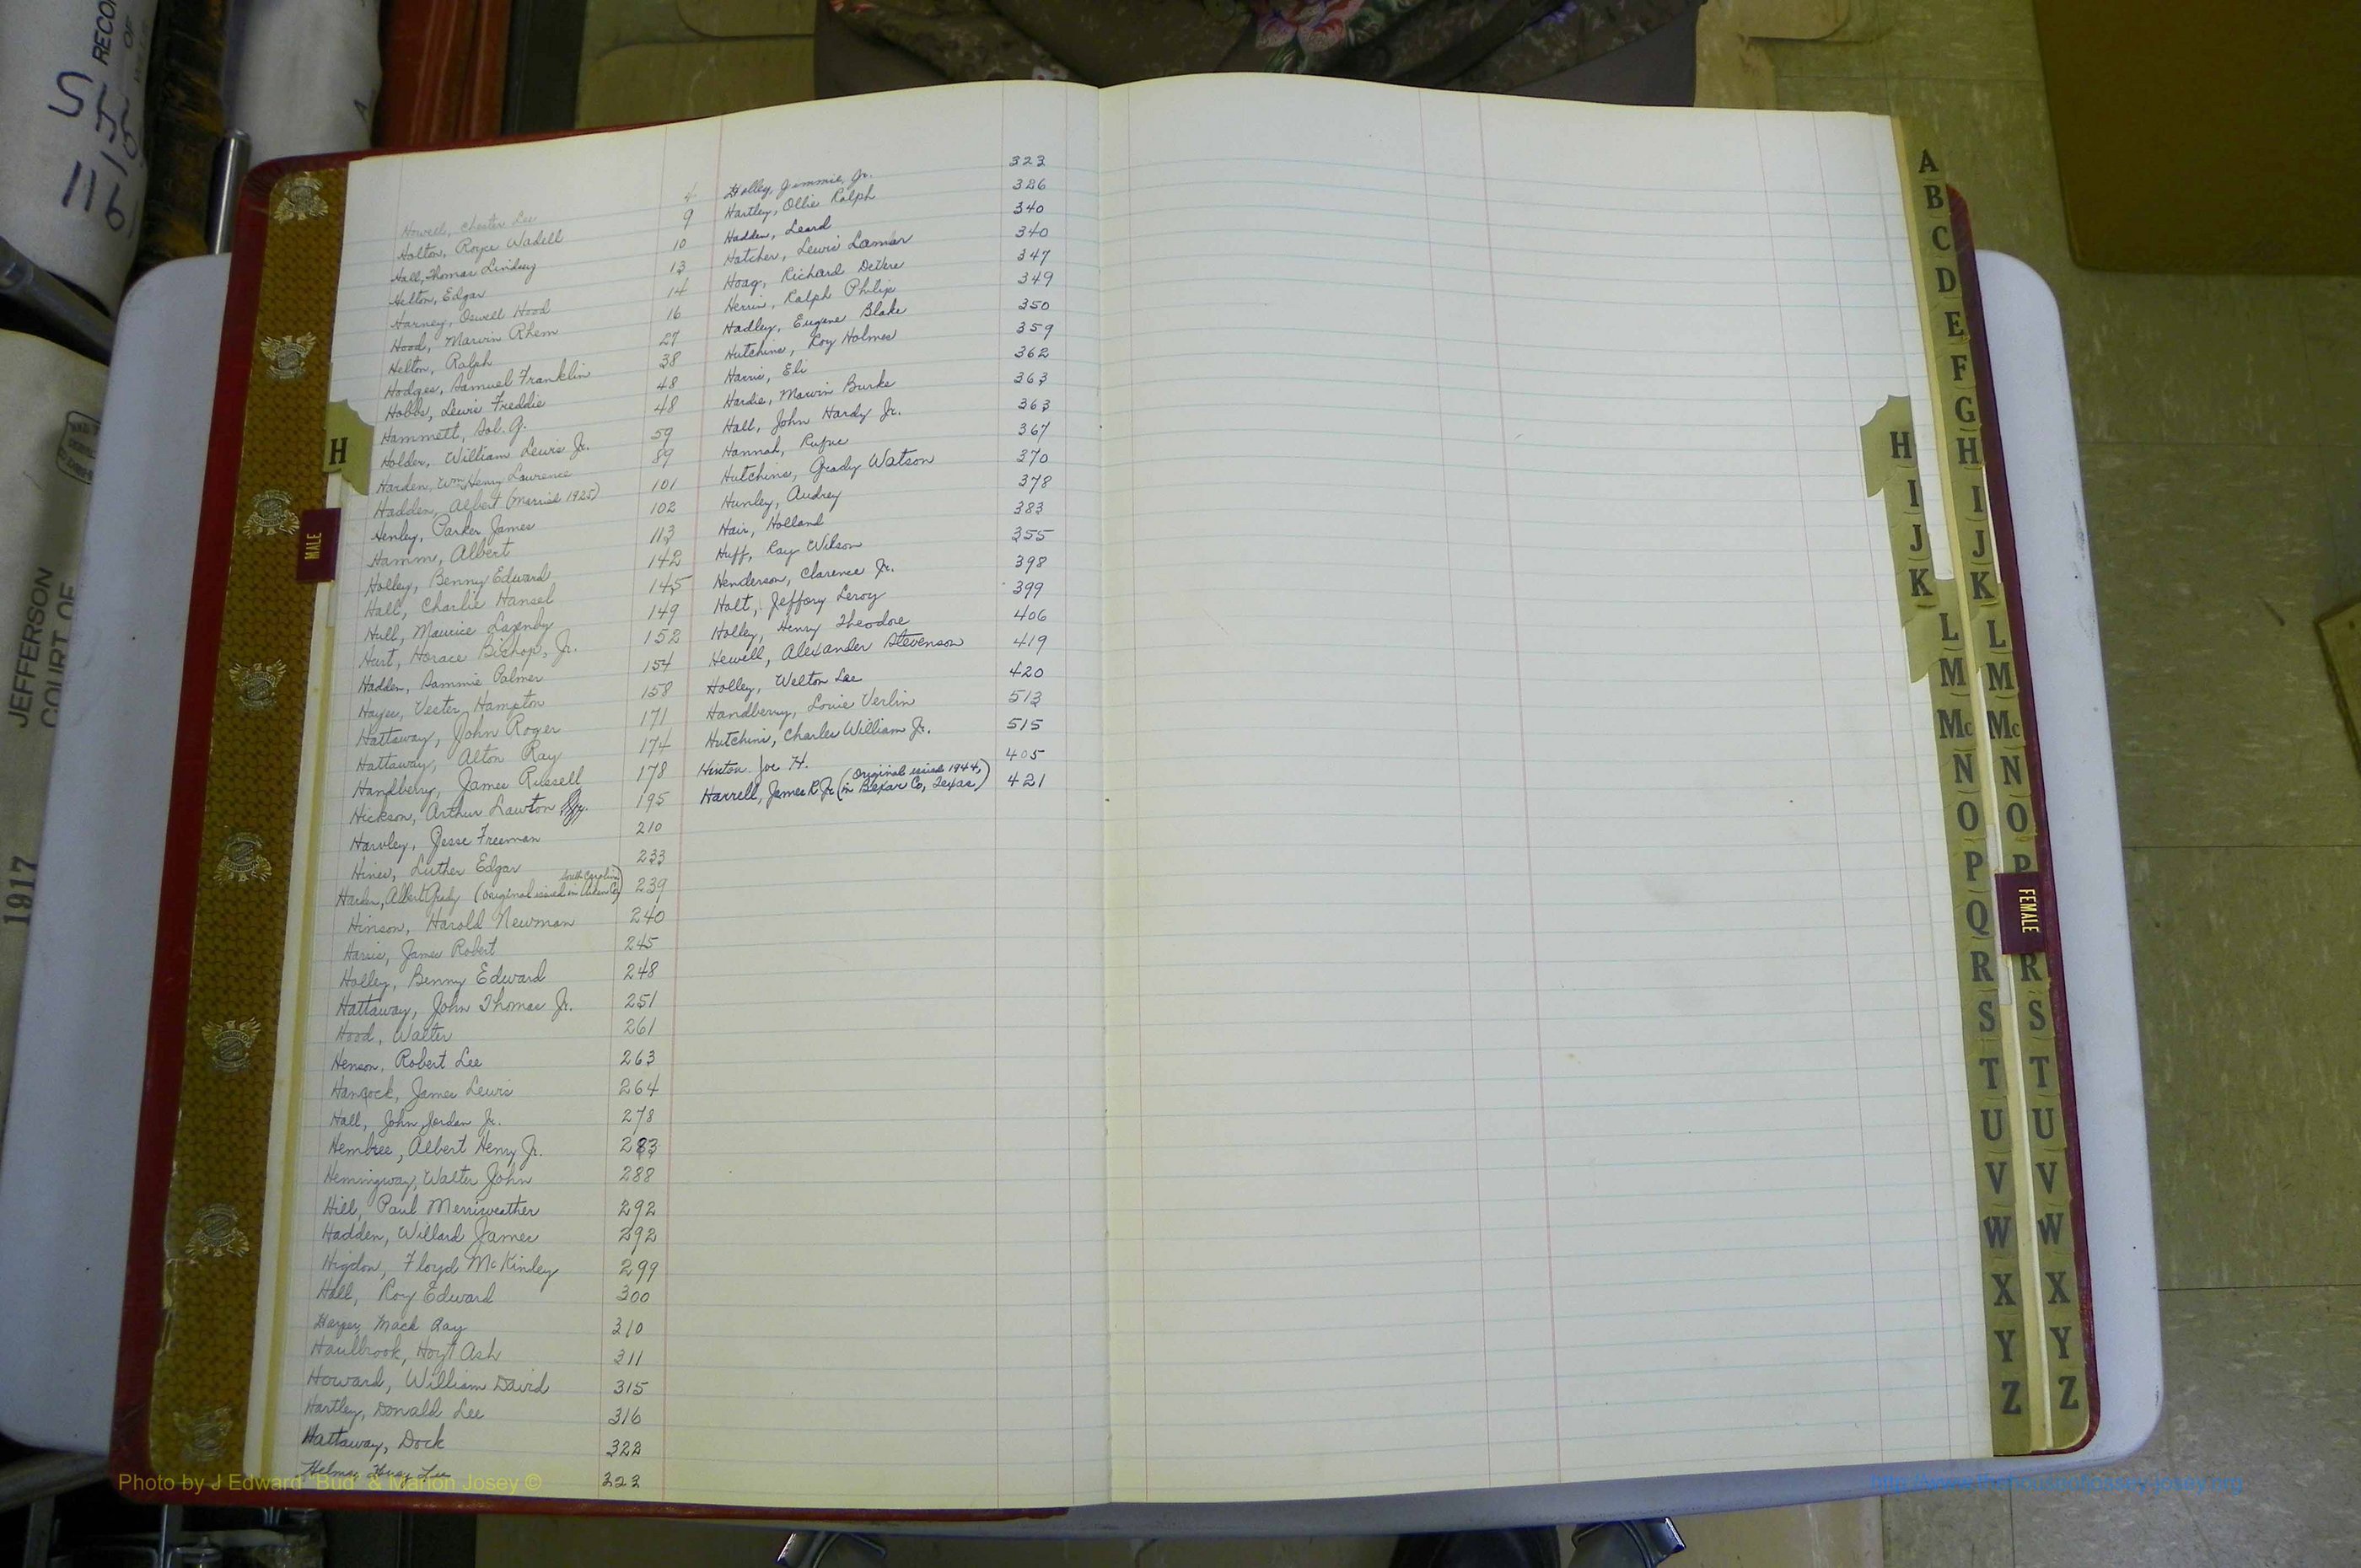 Howell, Chester Lee 4
Holton, Royce Wadell 9
Hall, Thomas Lindsey 10
Helton, Edgar 13
Harney, Oswell Hood 14
Hood, Marvin Rhem 16
Helton, Ralph 27
Hodges, Samuel Franklin 38
Hobbs, Lewis Freddie 48
Hammett, Sol. G. 48
Holder, William Lewis Jr. 59
Harden, Wm Henry Lawrence 89
Hadden, Albert (Married 1925) 101
Henley, Parker James 102
Hamm, Albert 113
Holley, Benny Edward 142
Hall, Charlie Hansel 145
Hull, Maurice Lazenby 149
Hart, Horace Bishop, Jr. 152
Hadden, Sammie Palmer 154
Hayes, Vester Hampton 158
Hattaway, John Roger 171
Hattaway, Alton Ray 174
Handberry, James Russell 178
Hickson, Arthur Lawton Jr. 195
Harvley, Jesse Freeman 210
Hines, Luther Edgar 233
Harden, Albert Grady (Original issued in Aiken Co, South Carolina) 239
Hinson, Harold Newman 240
Harris, James Robert 245
Holley, Benny Edward 248
Hattaway, John Thomas Jr. 251
Hood, Walter 261
Henson, Robert Lee 263
Hancock, James Lewis 264
Hall, John Jordan Jr. 278
Hembree, Albert Henry Jr. 283
Hemingway, Walter John 288
Hill, Paul Merriweather 292
Hadden, Willard James 292
Higdon, Floyd McKinley 299
Hall, Roy Edward 300
Harper, Mack Ray 310
Haulbrook, Hoyt Ash 311
Howard, William David 315
Hartley, Donald Lee 316
Hattaway, Dock 322
Helmes, Huey Lee 323
Holley, Jimmie, Jr. 323
Hartley, Ollie Ralph 326
Hadden, Leard 340
Hatcher, Lewis Lamar 340
Hoag, Richard DeVere 347
Herrin, Ralph Philip 349
Hadley, Eugene Blake 350
Hutchins, Roy Holmes 359
Harris, Eli 362
Hardie, Marvin Burke 363
Hall, John Hardy Jr. 363
Hannah, Rufus 367
Hutchins, Grady Watson 370
Hunley, Audrey 378
Hair, Holland 383
Huff, Ray Wilson 355
Henderson, Clarence Jr. 398
Holt, Jeffory Leroy 399
Holley, Henry Theodore 406
Hewell, Alexander Stevenson 419
Holley, Welton Lee 420
Handberry, Louie Verlin 513
Hutchins, Charles William Jr. 515
Hinton Joe H. 405
Harrell, James R Jr (Original issued 1944, in Bexar Co, Texas) 421
H
MALE
A
B
C
D
E
F
G
H H
I I
J J
K K
L L
M M
Mc Mc
N N
O O
P P
Q
FEMALE
R R
S S
T T
U U
V V
W W
X X
Y Y
Z Z
RECO
JEFFERSON
COURT OF
1917
Photo by J Edward "Bud" & Marion Josey ©